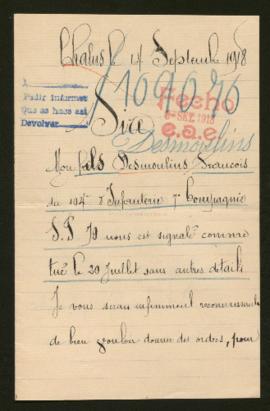 Chalus le 4 Septembre 1918
109026
Pedir informes
Que se hace así
Devolver
Fecho
6-SET. 1918
e.a.e.
Sire
Desmoulins
Mon fils Desmoulins Francois
du 104e d'Infanterie 7e Compagnie
S.P 79 nous est signalé comme
tué le 20 Juillet sans autres détails
Je vous serais infiniment reconnaissante
de bien vouloir donner des ordres, pour